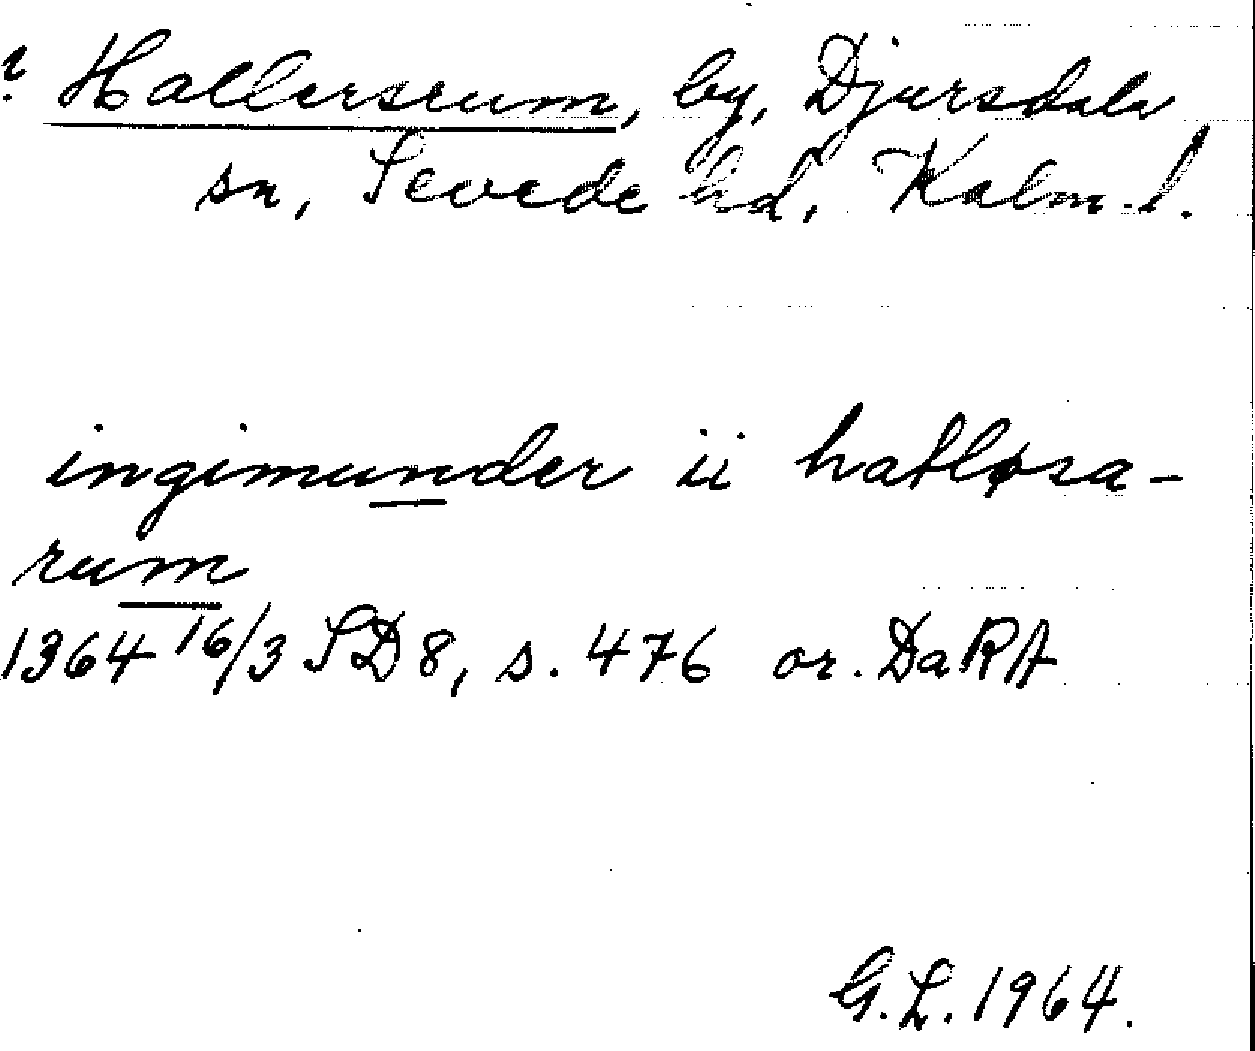 ? Hallersrum, by, Djursdala
sn, Sevede hd, Kalm. l.
ingimunder ii hatløsa-
rum
1364 16/3 SD 8, s. 476 or. DaRA
G.L. 1964.